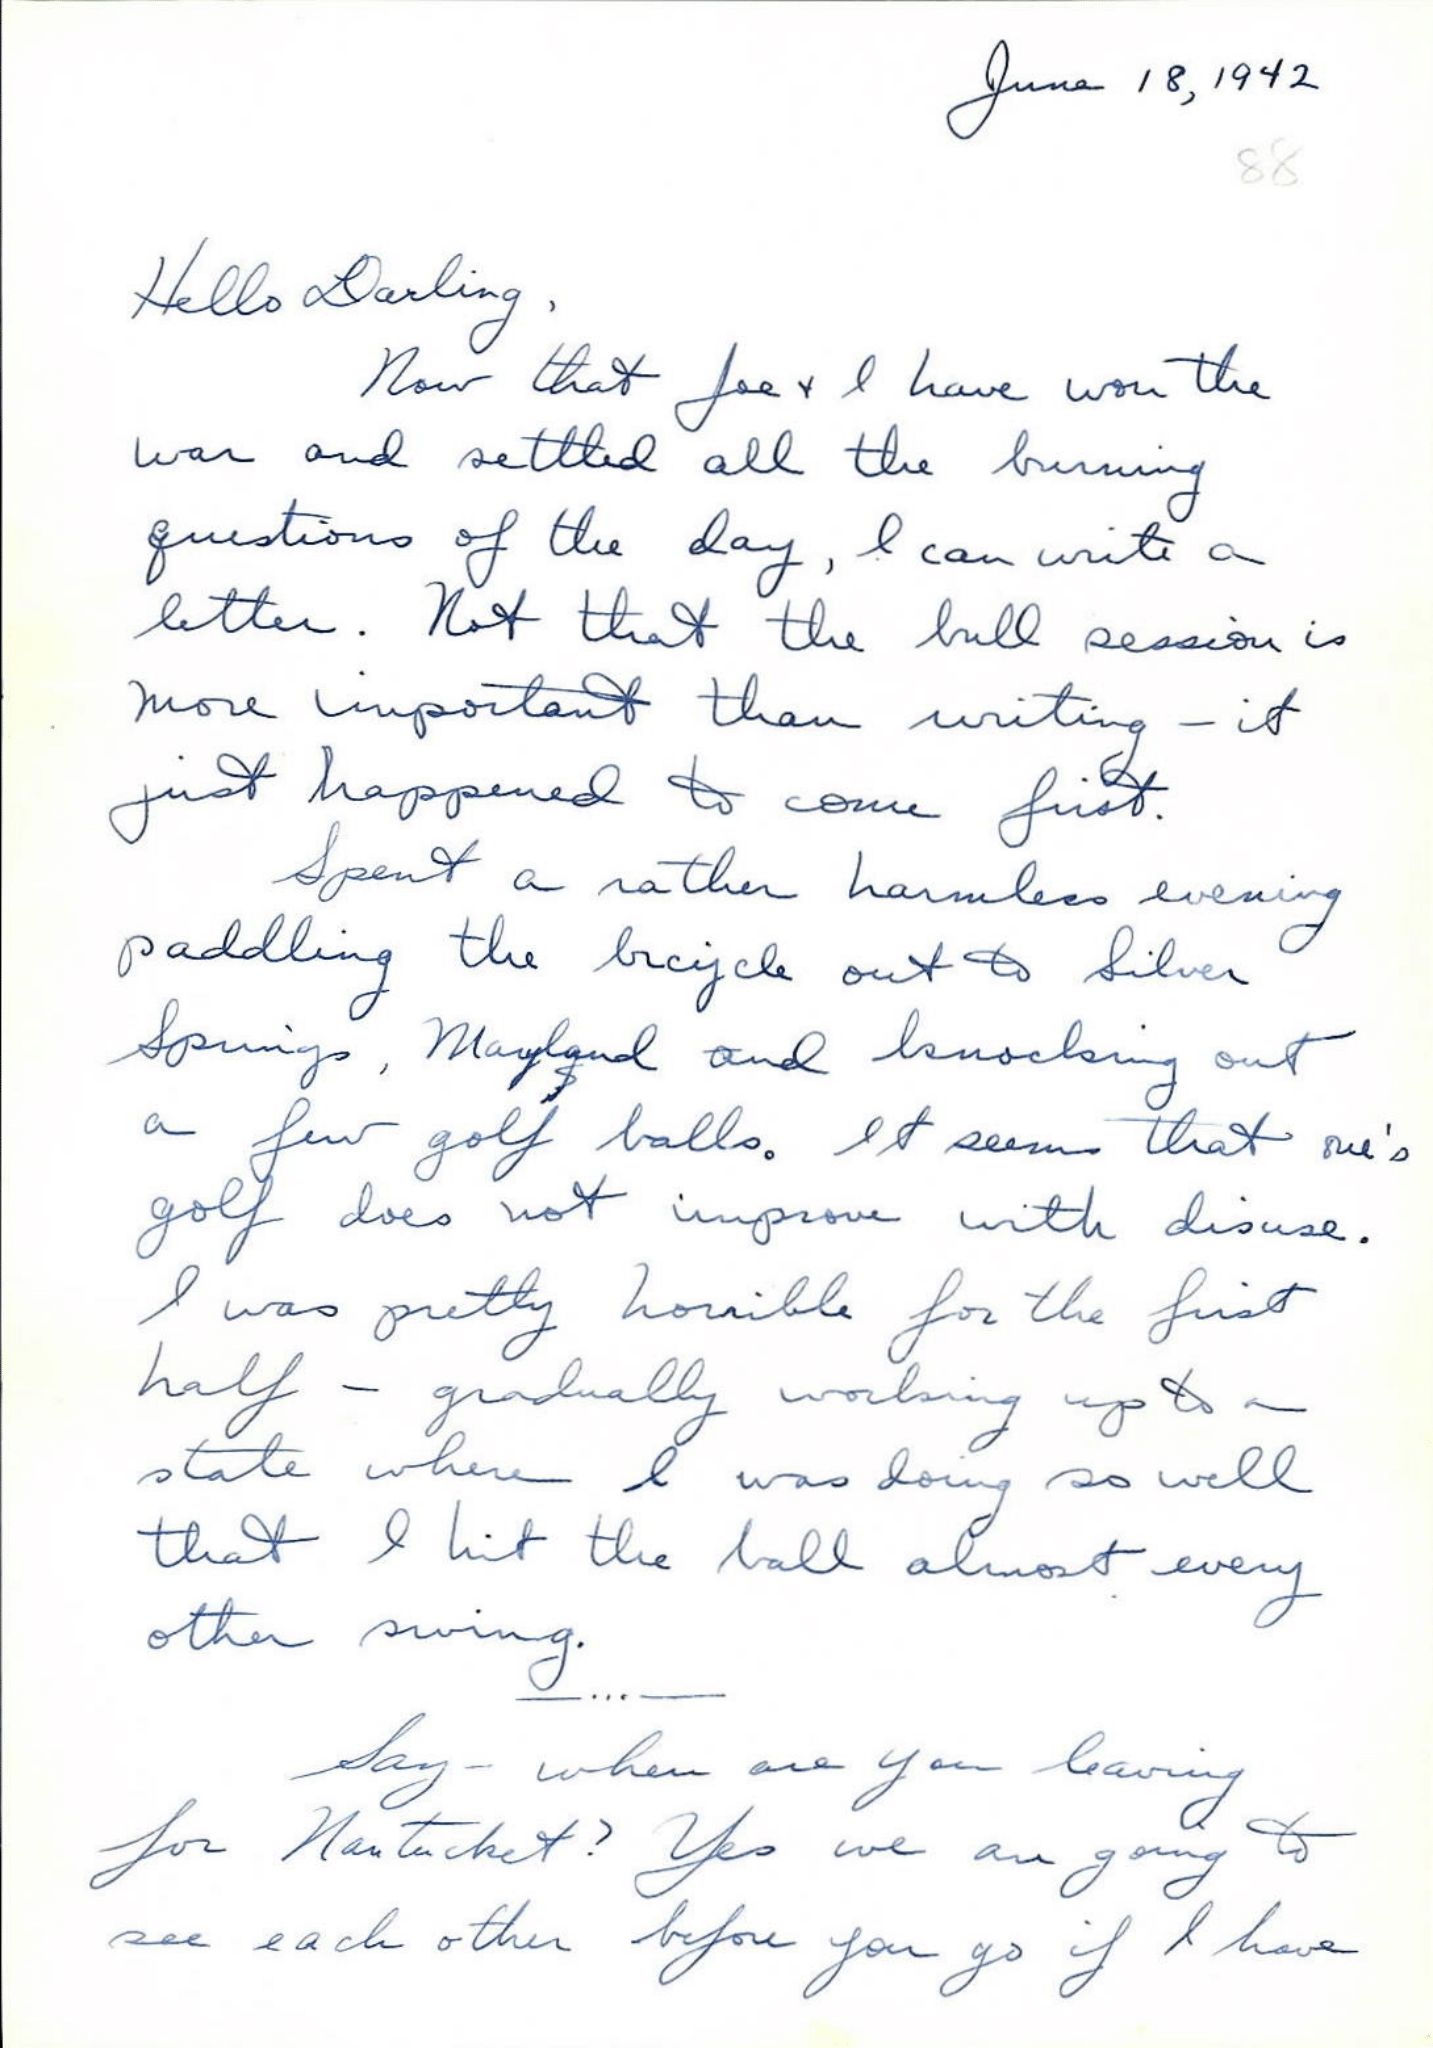 June 18, 1942
88
Hello Darling,
Now that Joe & I have won the
war and settled all the burning
questions of the day, I can write a
letter. Not that the bull session is
more important than writing - it
just happened to come first.
Spent a rather harmless evening
paddling the bicycle out to Silver
Springs, Maryland and knocking out
a few golf balls. It seems that one's
golf does not improve with disuse.
I was pretty horrible for the first
half - gradually working up to a
state where I was doing so well
that I hit the ball almost every
other swing.
—...—
Say - when are you leaving
for Nantucket? Yes we are going to
see each other before you go if I have